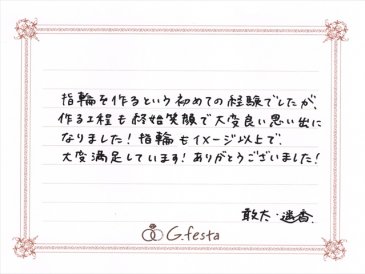 指輪を作るという初めての経験でしたが、
作る工程も終始笑顔で大変良い思い出に
なりました！指輪もイメージ以上で、
大変満足しています！ありがとうございました！
敢大・遥香.
G.festa